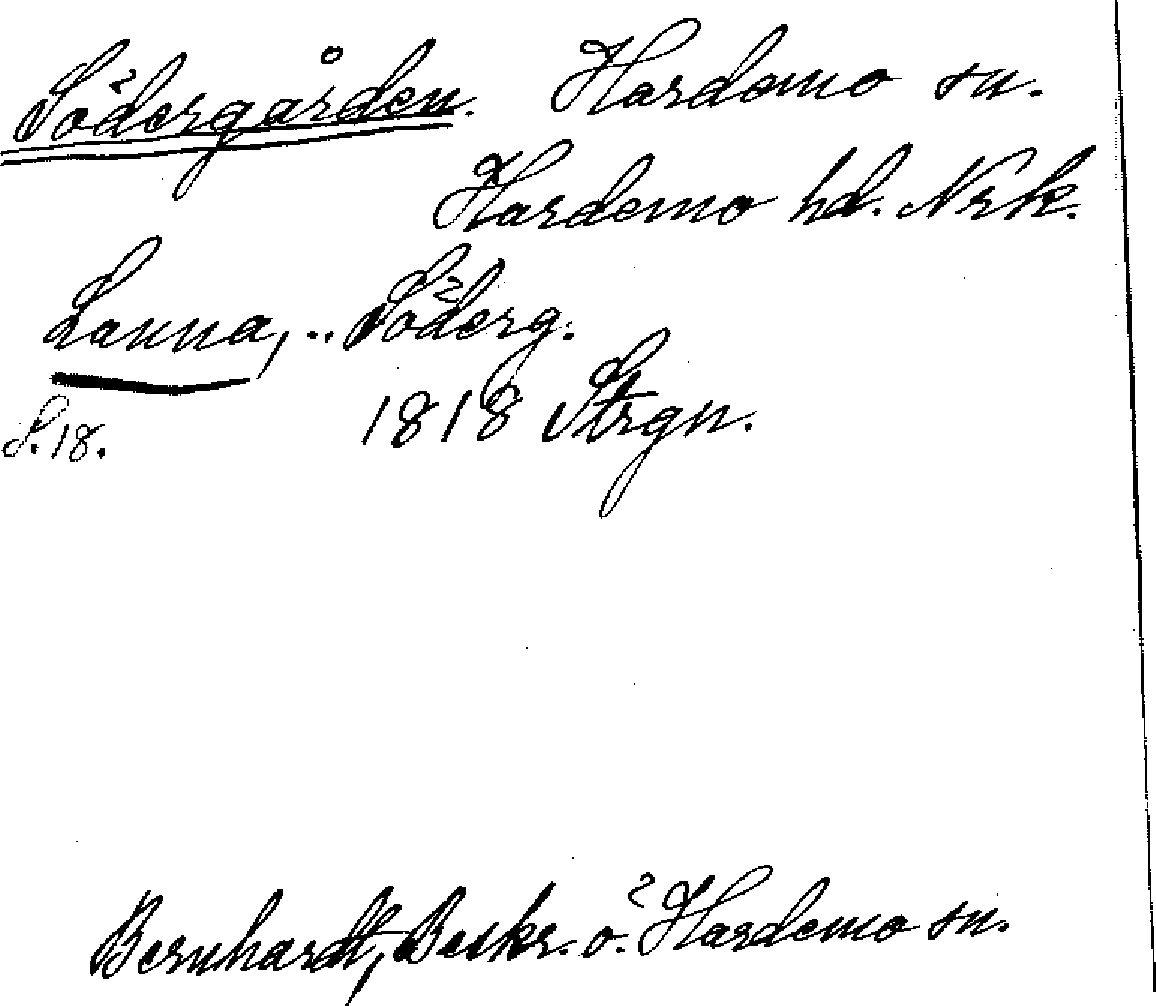 Södergården. Hardemo sn.
Hardemo hd. Nrk.
Lanna, .. Söderg.
S. 18. 1818 Strgn.
Bernhardt, Beskr. ö. Hardemo sn.